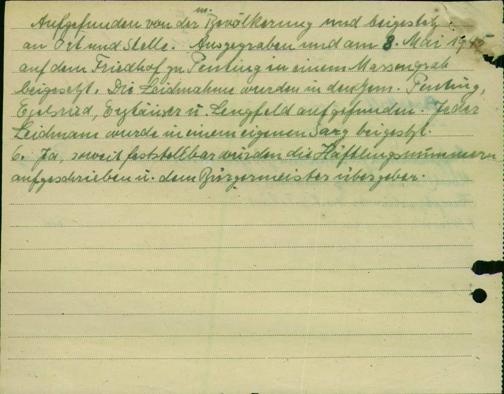 Aufgefunden von der Bevölkerung und beigesetzt
an Ort und Stelle. Ausgegraben und am 8. Mai 1945
auf dem Friedhof zu Penting in einem Massengrab
beigesetzt. Die Leichname wurden in den Gem. Penting,
u. Lengfeld aufgefunden. Jeder
Leichnam wurde in einem eigenen Sarg beigesetzt.
6. Ja, soweit feststellbar wurden die Häftlingsnummern
aufgeschrieben u. dem Bürgermeister übergeben.